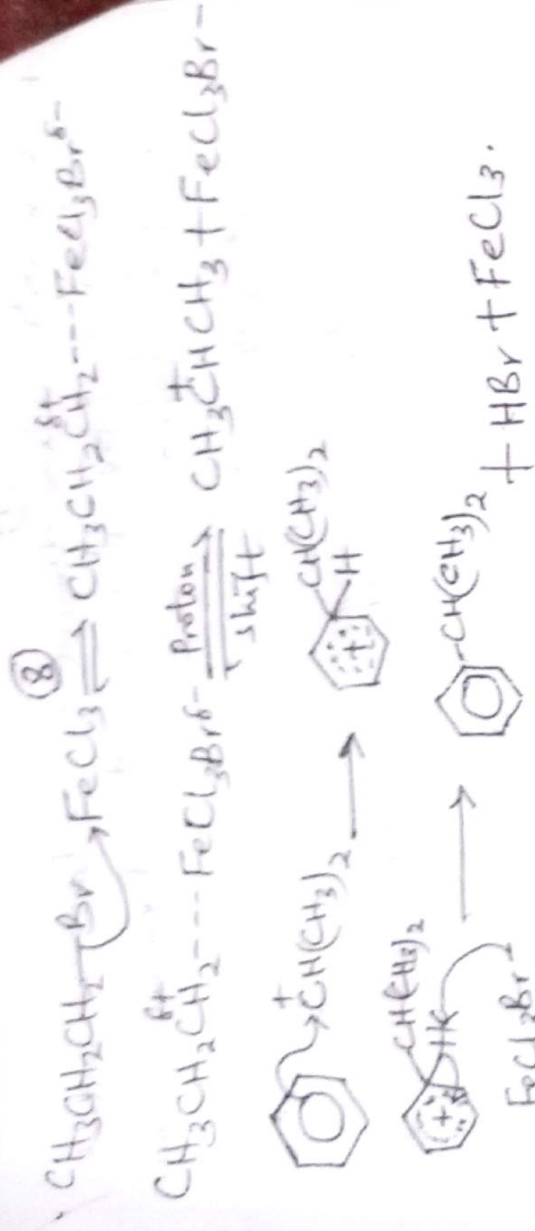 (8)
CH3CH2CH2-Br → FeCl3 ⇌ CH3CH2CH2δ+---FeCl3Brδ-
CH3CH2CH2δ+---FeCl3Brδ- Proton shift ⇌ CH3C+HCH3 + FeCl3Br-
+CH(CH3)2 → + CH(CH3)2 H
+ CH(CH3)2 H FeCl3Br- → CH(CH3)2 + HBr + FeCl3.